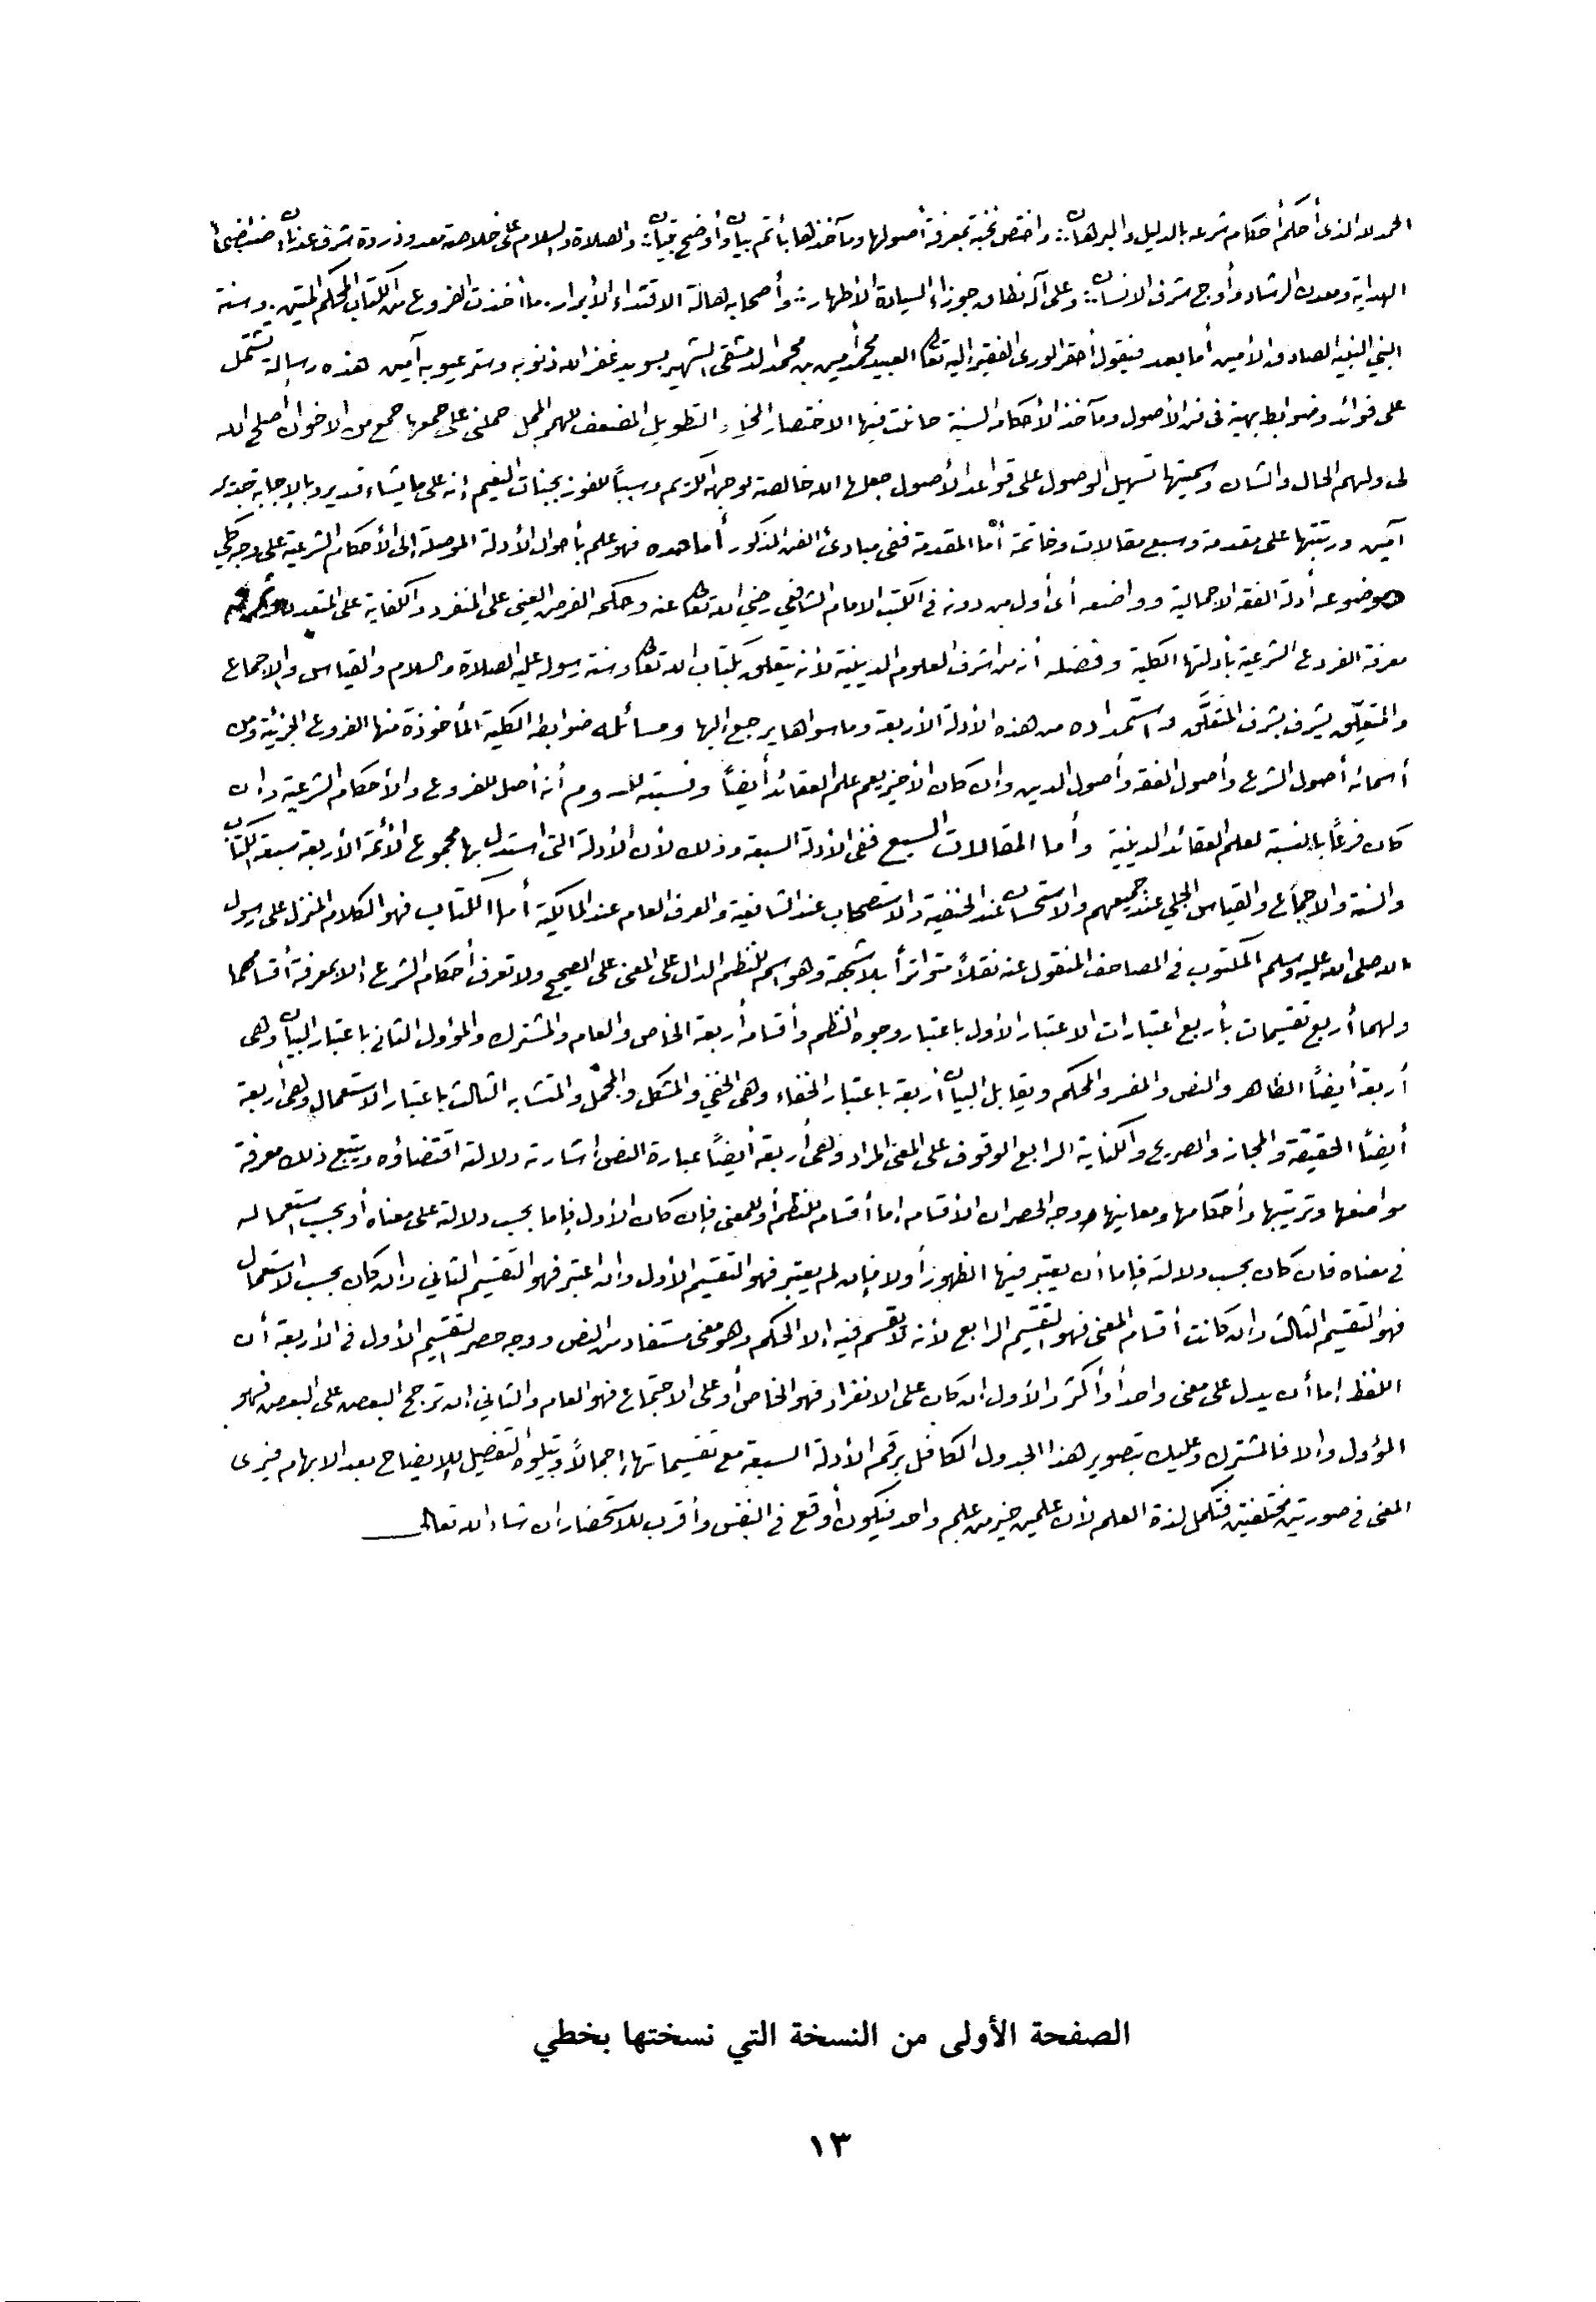 الحمد لله الذي أحكم أحكام شرعه بالدليل والبرهان :: واختص نخبة بمعرفة أصولها ومآخذها بأتم بيان وأوضح تبيان :: والصلاة والسلام على خلاصة معد وذروة شرف عدنان
الهداية ومعدن الرشاد وأوج شرف الانسان :: وعلى آله نطاق جوزاء السيادة الأطهار :: وأصحابه هالة الاقتداء الأبرار . ما أخذت الفروع من الكتاب المحكم المتين . وسنة
النبي النبيه الصادق الأمين أما بعد فيقول أحقر الورى الفقير إليه تعالى العبيد محمد أمين بن محمد الدمشقي الشهير بسويد غفر الله ذنوبه وستر عيوبه آمين هذه رسالة تشتمل
على فوائد وضوابط بهية في فن الأصول ومآخذ الأحكام السنية جانبت فيها الاختصار المخل والتطويل المضعف للهمم الممل حملني على جمعها جمع من الاخوان أصلح الله
لي ولهم الحال والشان وسميتها تسهيل الوصول على قواعد الأصول جعلها الله خالصة لوجهه الكريم وسبباً للفوز بجنات النعيم إنه على ما يشاء قدير وبالإجابة جدير
آمين ورتبتها على مقدمة وسبع مقالات وخاتمة أما المقدمة ففي مبادئ الفن المذكور أما حده فهو علم بأحوال الأدلة الموصلة إلى الأحكام الشرعية على وجه كلي
وموضوعه أدلة الفقه الاجمالية وواضعه أي أول من دونه في الكتب الامام الشافعي رضي الله تعالى عنه وحكمه الفرض العيني على المنفرد والكفاية على المتعدد وثمرته
معرفة الفروع الشرعية بأدلتها الكلية وفضله أنه من اشرف العلوم الدينية لأنه يتعلق بكتاب الله تعالى وسنة رسوله عليه الصلاة والسلام والقياس والإجماع
والمتعلِّق يشرف بشرف المتعلَّق واستمداده من هذه الأدلة الأربعة وما سواها يرجع إليها ومسائله ضوابطه الكلية المأخوذة منها الفروع الجزئية ومن
أسمائه أصول الشرع وأصول الفقه وأصول الدين وان كان الأخير يعم علم العقائد أيضاً ونسبته للعلوم أنه أصل للفروع والأحكام الشرعية وان
كان فرعاً بالنسبة لعلم العقائد الدينية وأما المقالات السبع ففي الأدلة السبعة وذلك لأن الأدلة التي استدل بها مجموع الأئمة الأربعة سبعة الكتاب
والسنة والاجماع والقياس الجلي عند جميعهم والاستحسان عند الحنفية والاستصحاب عند الشافعية والعرف العام عند المالكية أما الكتاب فهو الكلام المنزل على رسول
الله صلى الله عليه وسلم المكتوب في المصاحف المنقول عنه نقلاً متواتراً بلا شبهة وهو اسم للنظم الدال على المعنى على الصحيح ولا تعرف أحكام الشرع إلا بمعرفة أقسامهما
ولهما أربع تقسيمات بأربع اعتبارات الاعتبار الأول باعتبار وجوه النظم وأقسامه أربعة الخاص والعام والمشترك والمؤول الثاني باعتبار البيان وهي
أربعة أيضاً الظاهر والنص والمفسر والمحكم ويقابل البيان أربعة باعتبار الخفاء وهي الخفي والمشكل والمجمل والمتشابه الثالث باعتبار الاستعمال وهي أربعة
أيضاً الحقيقة والمجاز والصريح والكناية الرابع الوقوف على المعنى المراد وهي أربعة أيضاً عبارة النص اشارته دلالته اقتضاؤه ويتبع ذلك معرفة
مواضعها وترتيبها وأحكامها ومعانيها ووجه الحصر ان الأقسام إما أقسام للنظم أو للمعنى فإن كان الأول فإما بحسب دلالته على معناه أو بحسب استعماله
في معناه فان كان بحسب دلالته فإما أن يعتبر فيها الظهور أولا فإن لم يعتبر فهو التقسيم الأول وان اعتبر فهو التقسيم الثاني وان كان بحسب الاستعمال
فهو التقسيم الثالث وان كانت أقسام المعنى فهو التقسيم الرابع لأنه لا يقسم فيه إلا الحكم وهو معنى مستفاد من النص ووجه حصر التقسيم الأول في الأربعة أن
اللفظ إما أن يدل على معنى واحد أو أكثر والأول ان كان على الانفراد فهو الخاص أو على الاجتماع فهو العام والثاني ان ترجح البعض على البعض فهو
المؤول والا فالمشترك وعليك بتصوير هذا الجدول الكافل برقم الأدلة السبعة مع تقسيماتها إجمالاً ويتلوه التفصيل للإيضاح بعد الابهام فيرى
المعنى في صورتين مختلفتين فتكمل لذة العلم لأن علمين خير من علم واحد فيكون أوقع في النفس وأقرب للاستحضار ان شاء الله تعالى
الصفحة الأولى من النسخة التي نسختها بخطي
١٣